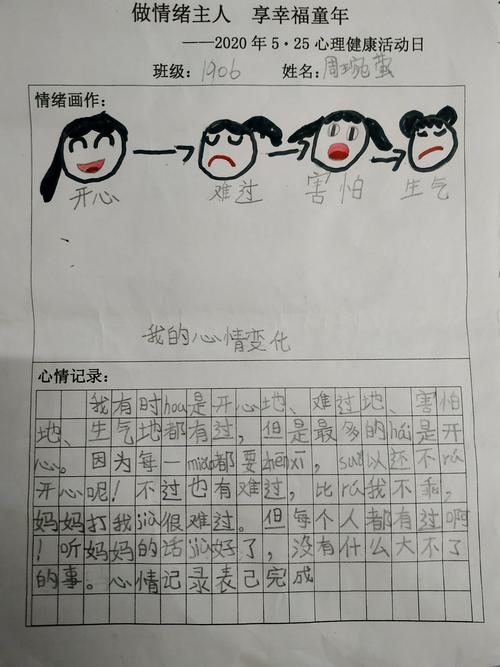 做情绪主人　享幸福童年
——2020年5·25心理健康活动日
班级：1906　姓名：周琬萤
情绪画作：
开心　难过　害怕　生气
我的心情变化
心情记录：
我有时hou是开心地、难过地、害怕
地、生气地都有过，但是最多的hái是开
心。因为每一miao都要zhenxī，suǒ以还不rú
开心呢！不过也有难过，比rú我不乖，
妈妈打我jiù很难过。但每个人都有过啊
！听妈妈的话jiù好了，没有什么大不了
的事。心情记录表己完成